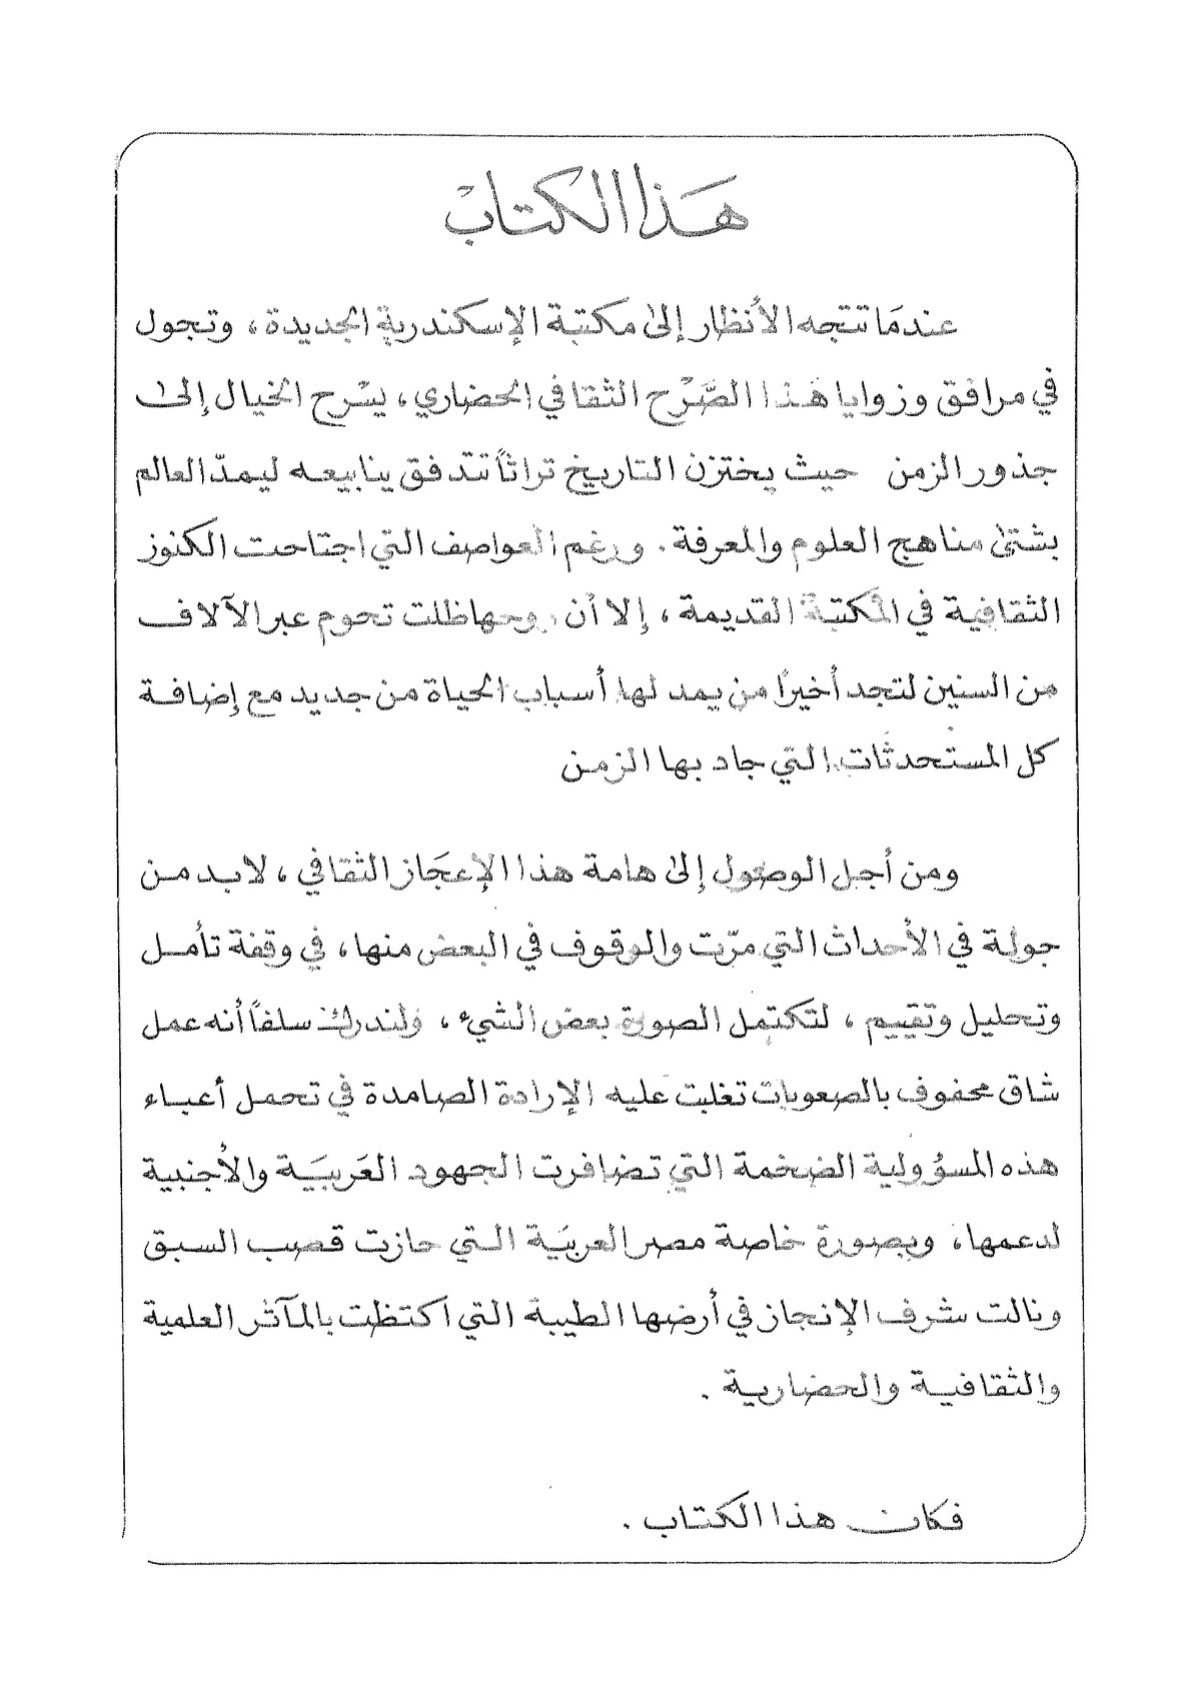 هَذا الكتابْ
عندمَا تتجه الأنظار إلىٰ مكتبة الإسكندرية الجديدة، وتجول
في مرافق وزوايا هَذا الصَّرْح الثقافي الحضاري، يسْرح الخيال إلىٰ
جذور الزمن حيث يختزن التاريخ تراثاً تتدفق ينابيعه ليمدّ العالم
بشتىٰ مناهج العلوم والمعرفة. ورغم العواصف التي اجتاحت الكنوز
الثقافية في المكتبة القديمة، إلا أن روحها ظلت تحوم عبر الآلاف
من السنين لتجد أخيرًا من يمد لها أسباب الحياة من جديد مع إضافة
كل المستحدثات التي جاد بها الزمن
ومن أجل الوصول إلىٰ هامة هذا الإعجَاز الثقافي، لابد من
جولة في الأحداث التي مرّت والوقوف في البعض منها، في وقفة تأمل
وتحليل وتقييم، لتكتمل الصورة بعض الشيء، ولندرك سلفاً أنه عمل
شاق محفوف بالصعوبات تغلبت عليه الإرادة الصامدة في تحمل أعباء
هذه المسؤولية الضخمة التي تضافرت الجهود العَربيَة والأجنبية
لدعمها، وبصورة خاصة مصر العربيَة التي حازت قصب السبق
ونالت شرف الإنجاز في أرضها الطيبة التي اكتظت بالمآثر العلمية
والثقافية والحضارية.
فكان هذا الكتاب.